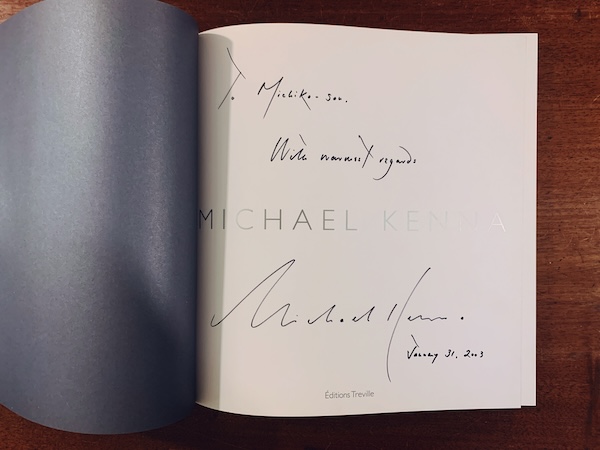 To Michiko-san.
With warmest regards
MICHAEL KENNA
Michael Kenna.
January 31, 2003
Éditions Treville